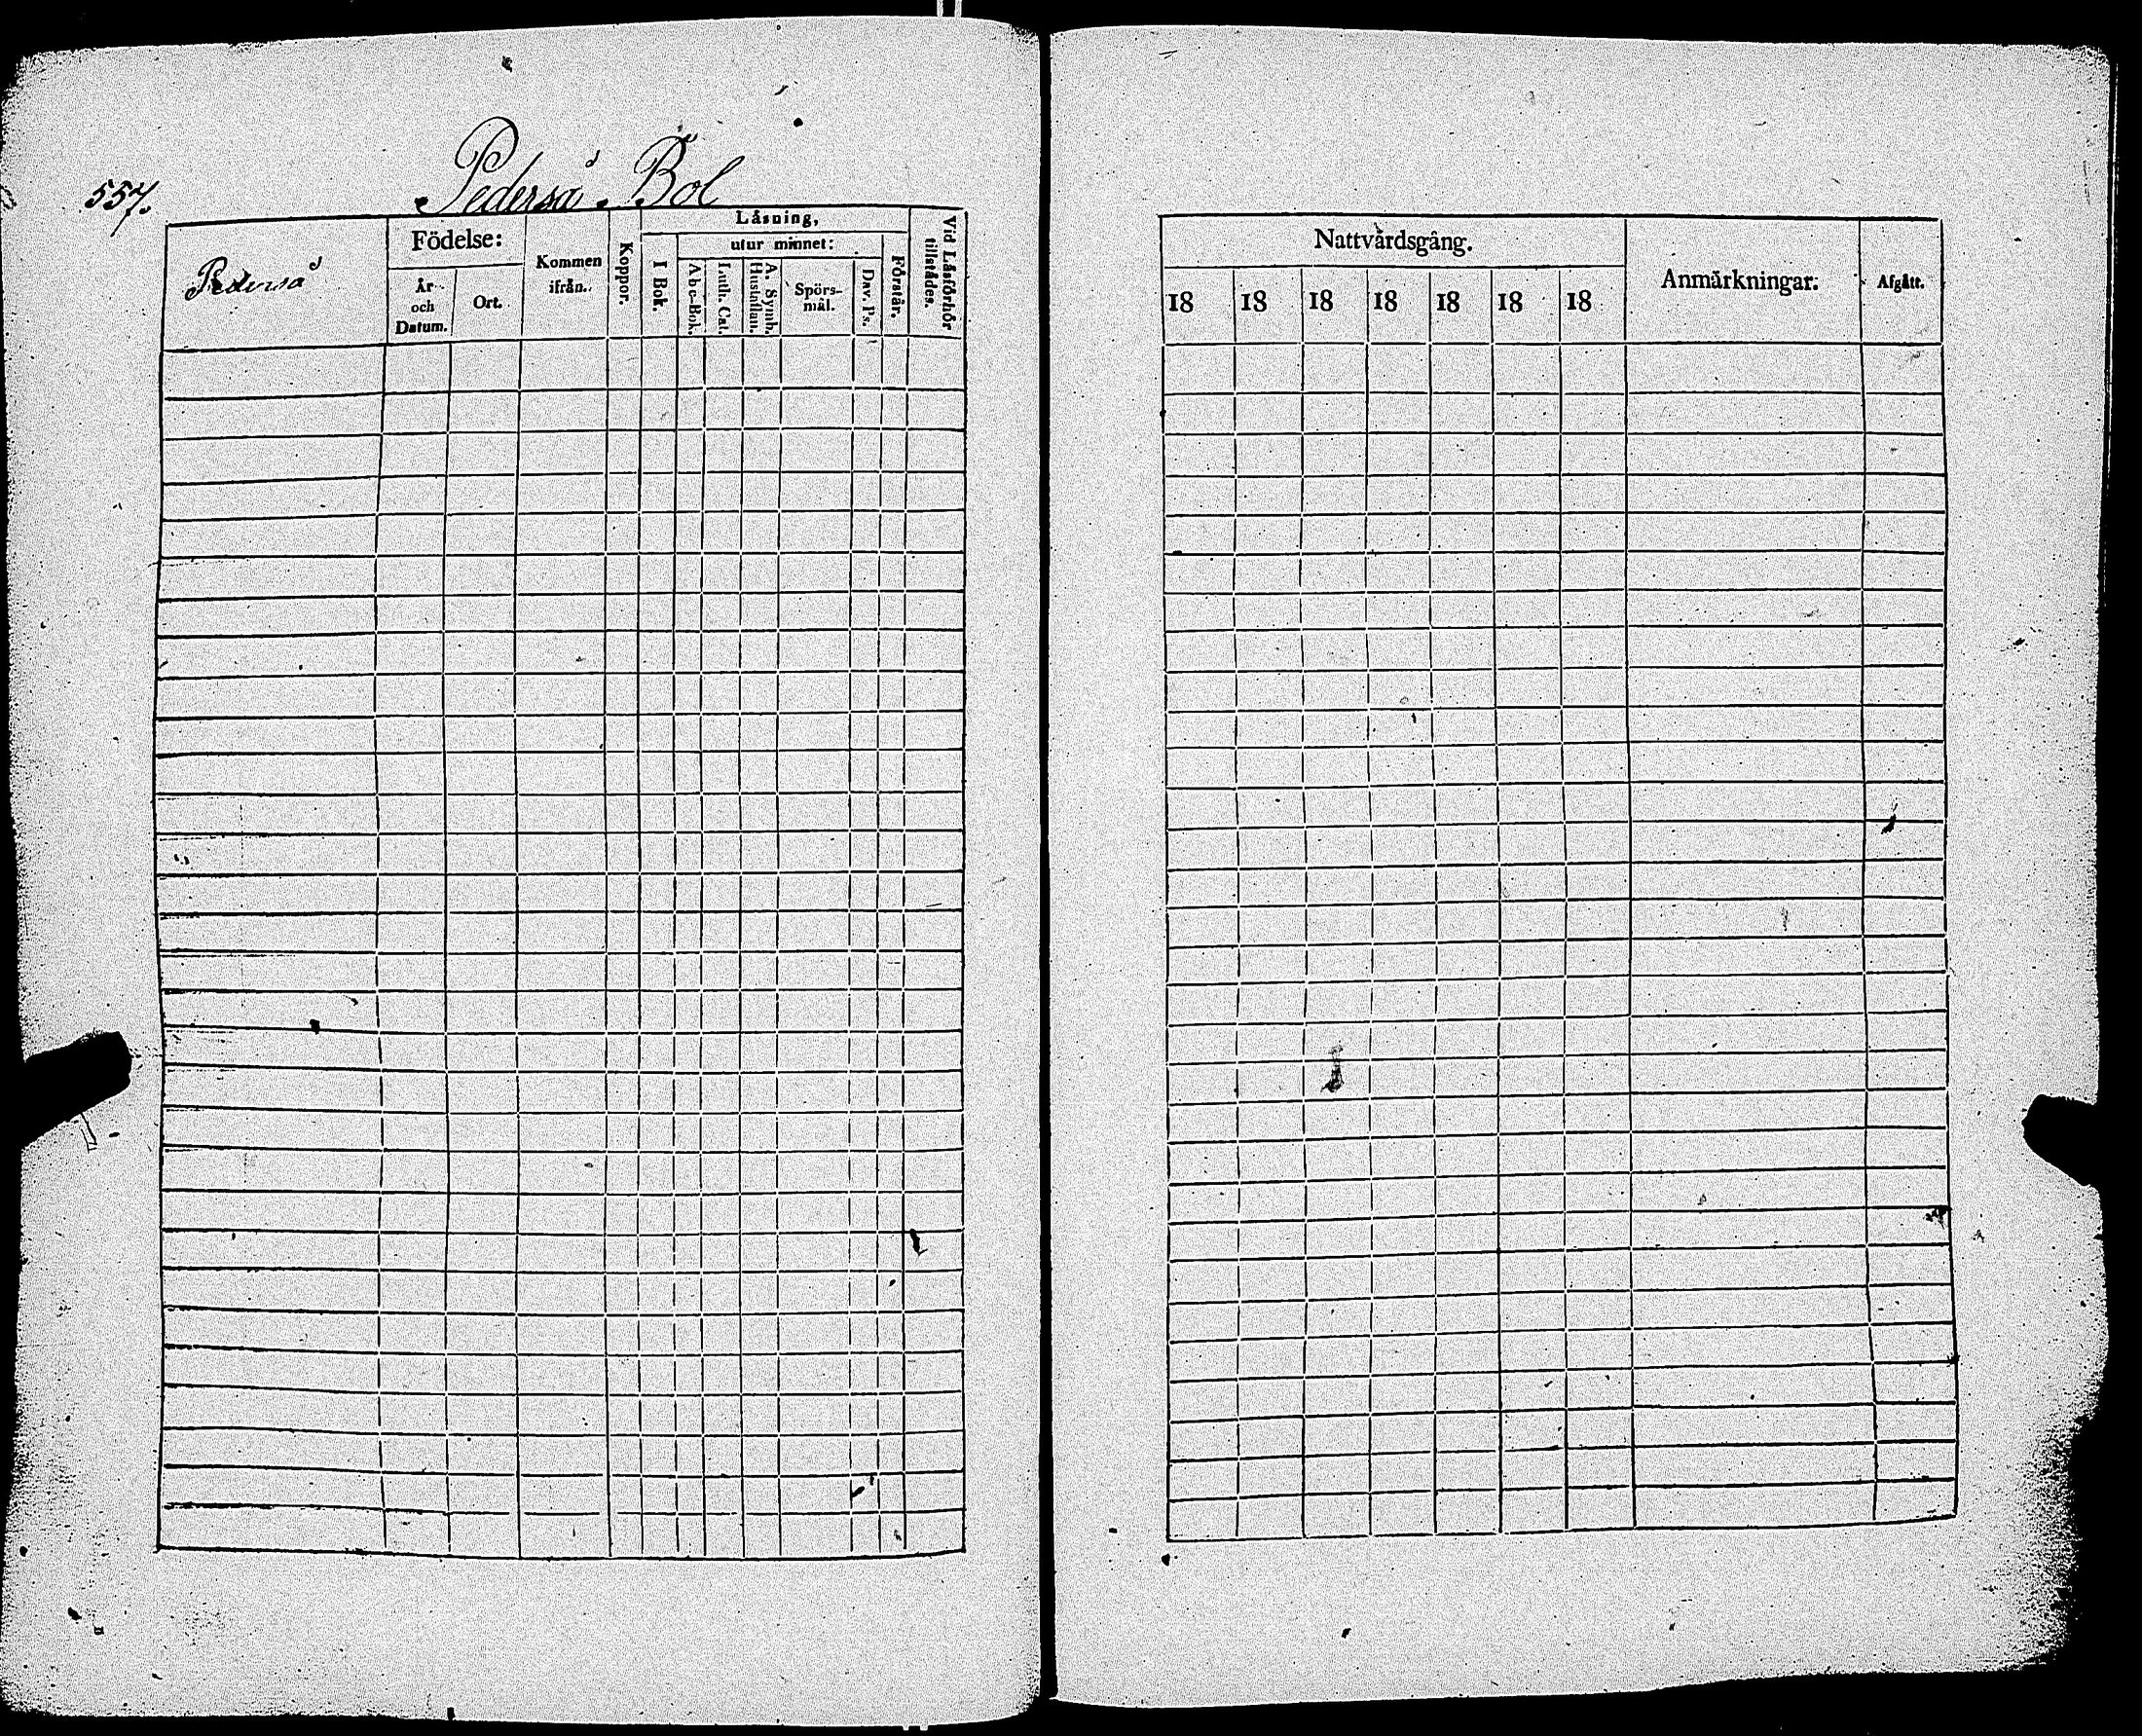 557.
Pederså Bol
Pederså
Födelse:
År och Datum.
Ort.
Kommen ifrån.
Koppor.
Läsning,
I Bok.
utur minnet:
A b c-Bok.
Luth. Cat.
A. Symb. Hustaflan.
Spörs-
mål.
Dav. Ps.
Förstår.
Vid Läsförhör
tillstädes.
Nattvardsgång.
18 18 18 18 18 18 18
Anmärkningar:
Afgått.